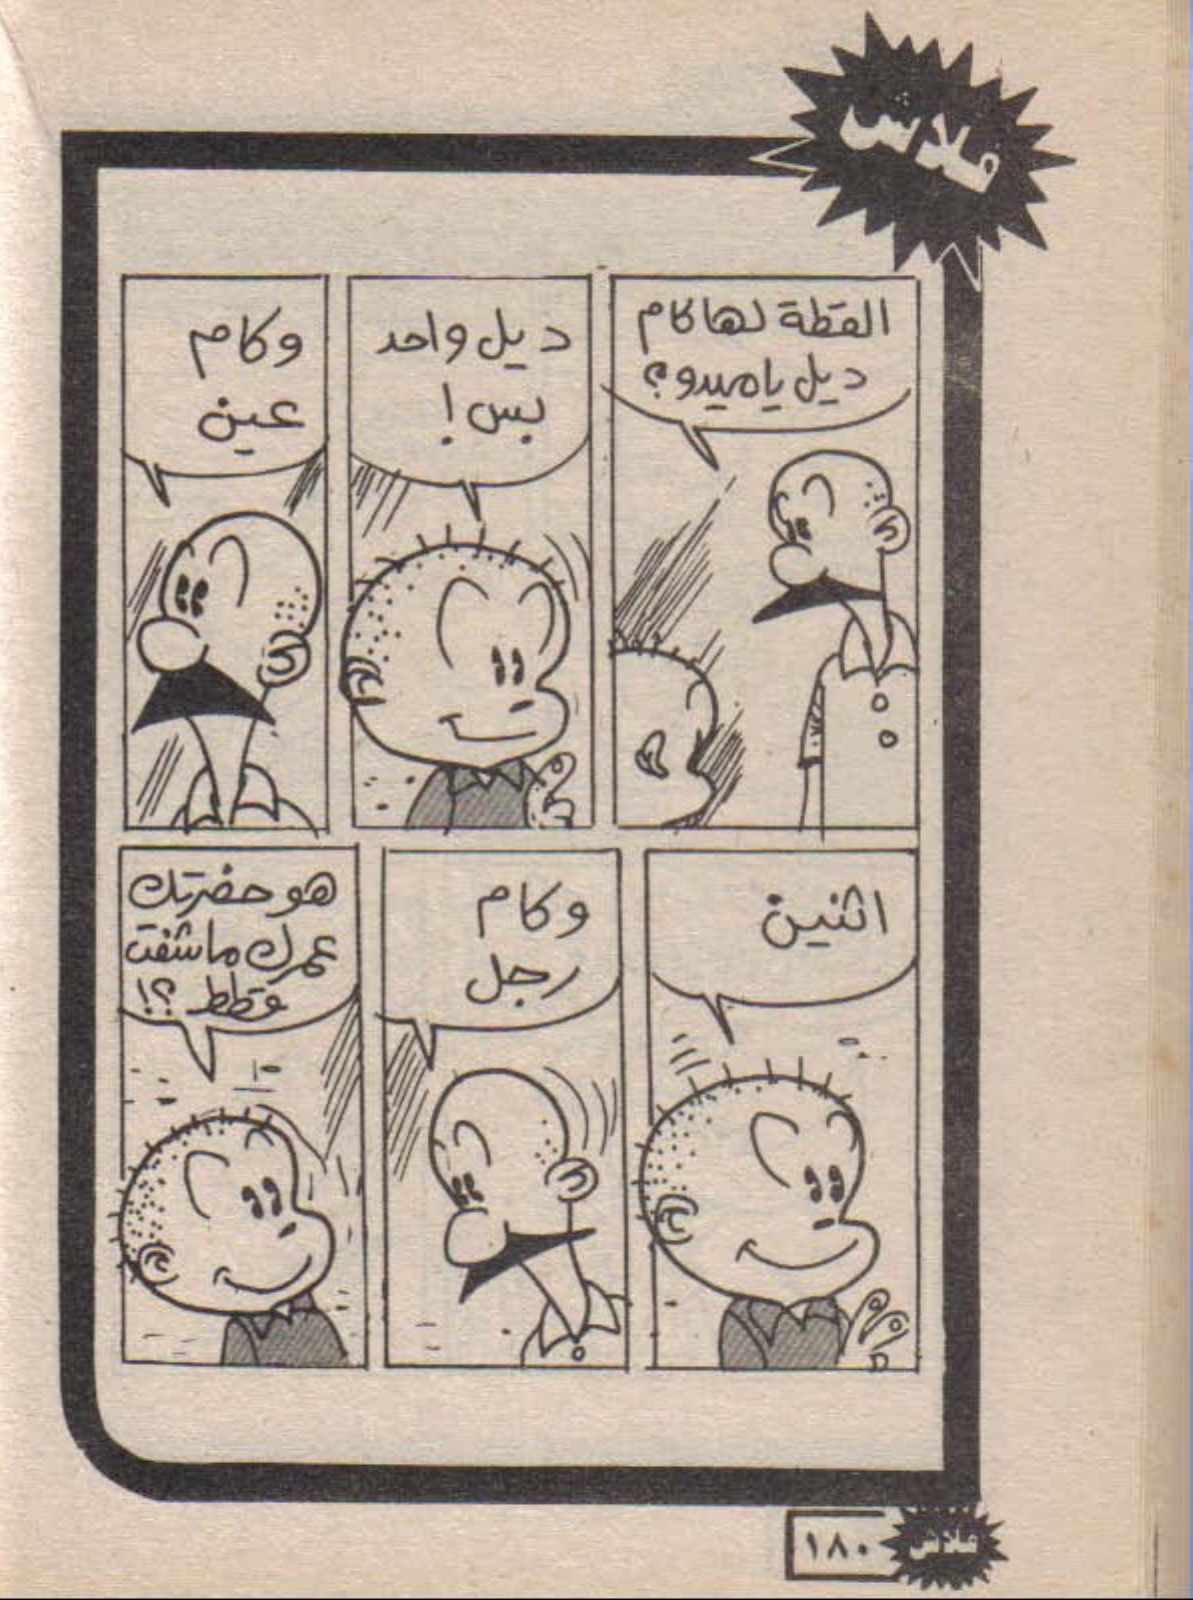 فلاش
القطة لها كام
ديل يا ميدو؟
ديل واحد
بس!
وكام
عين
اثنين
وكام
رجل
هو حضرتك
عمرك ما شفت
قطط ؟!
١٨٠
فلاش